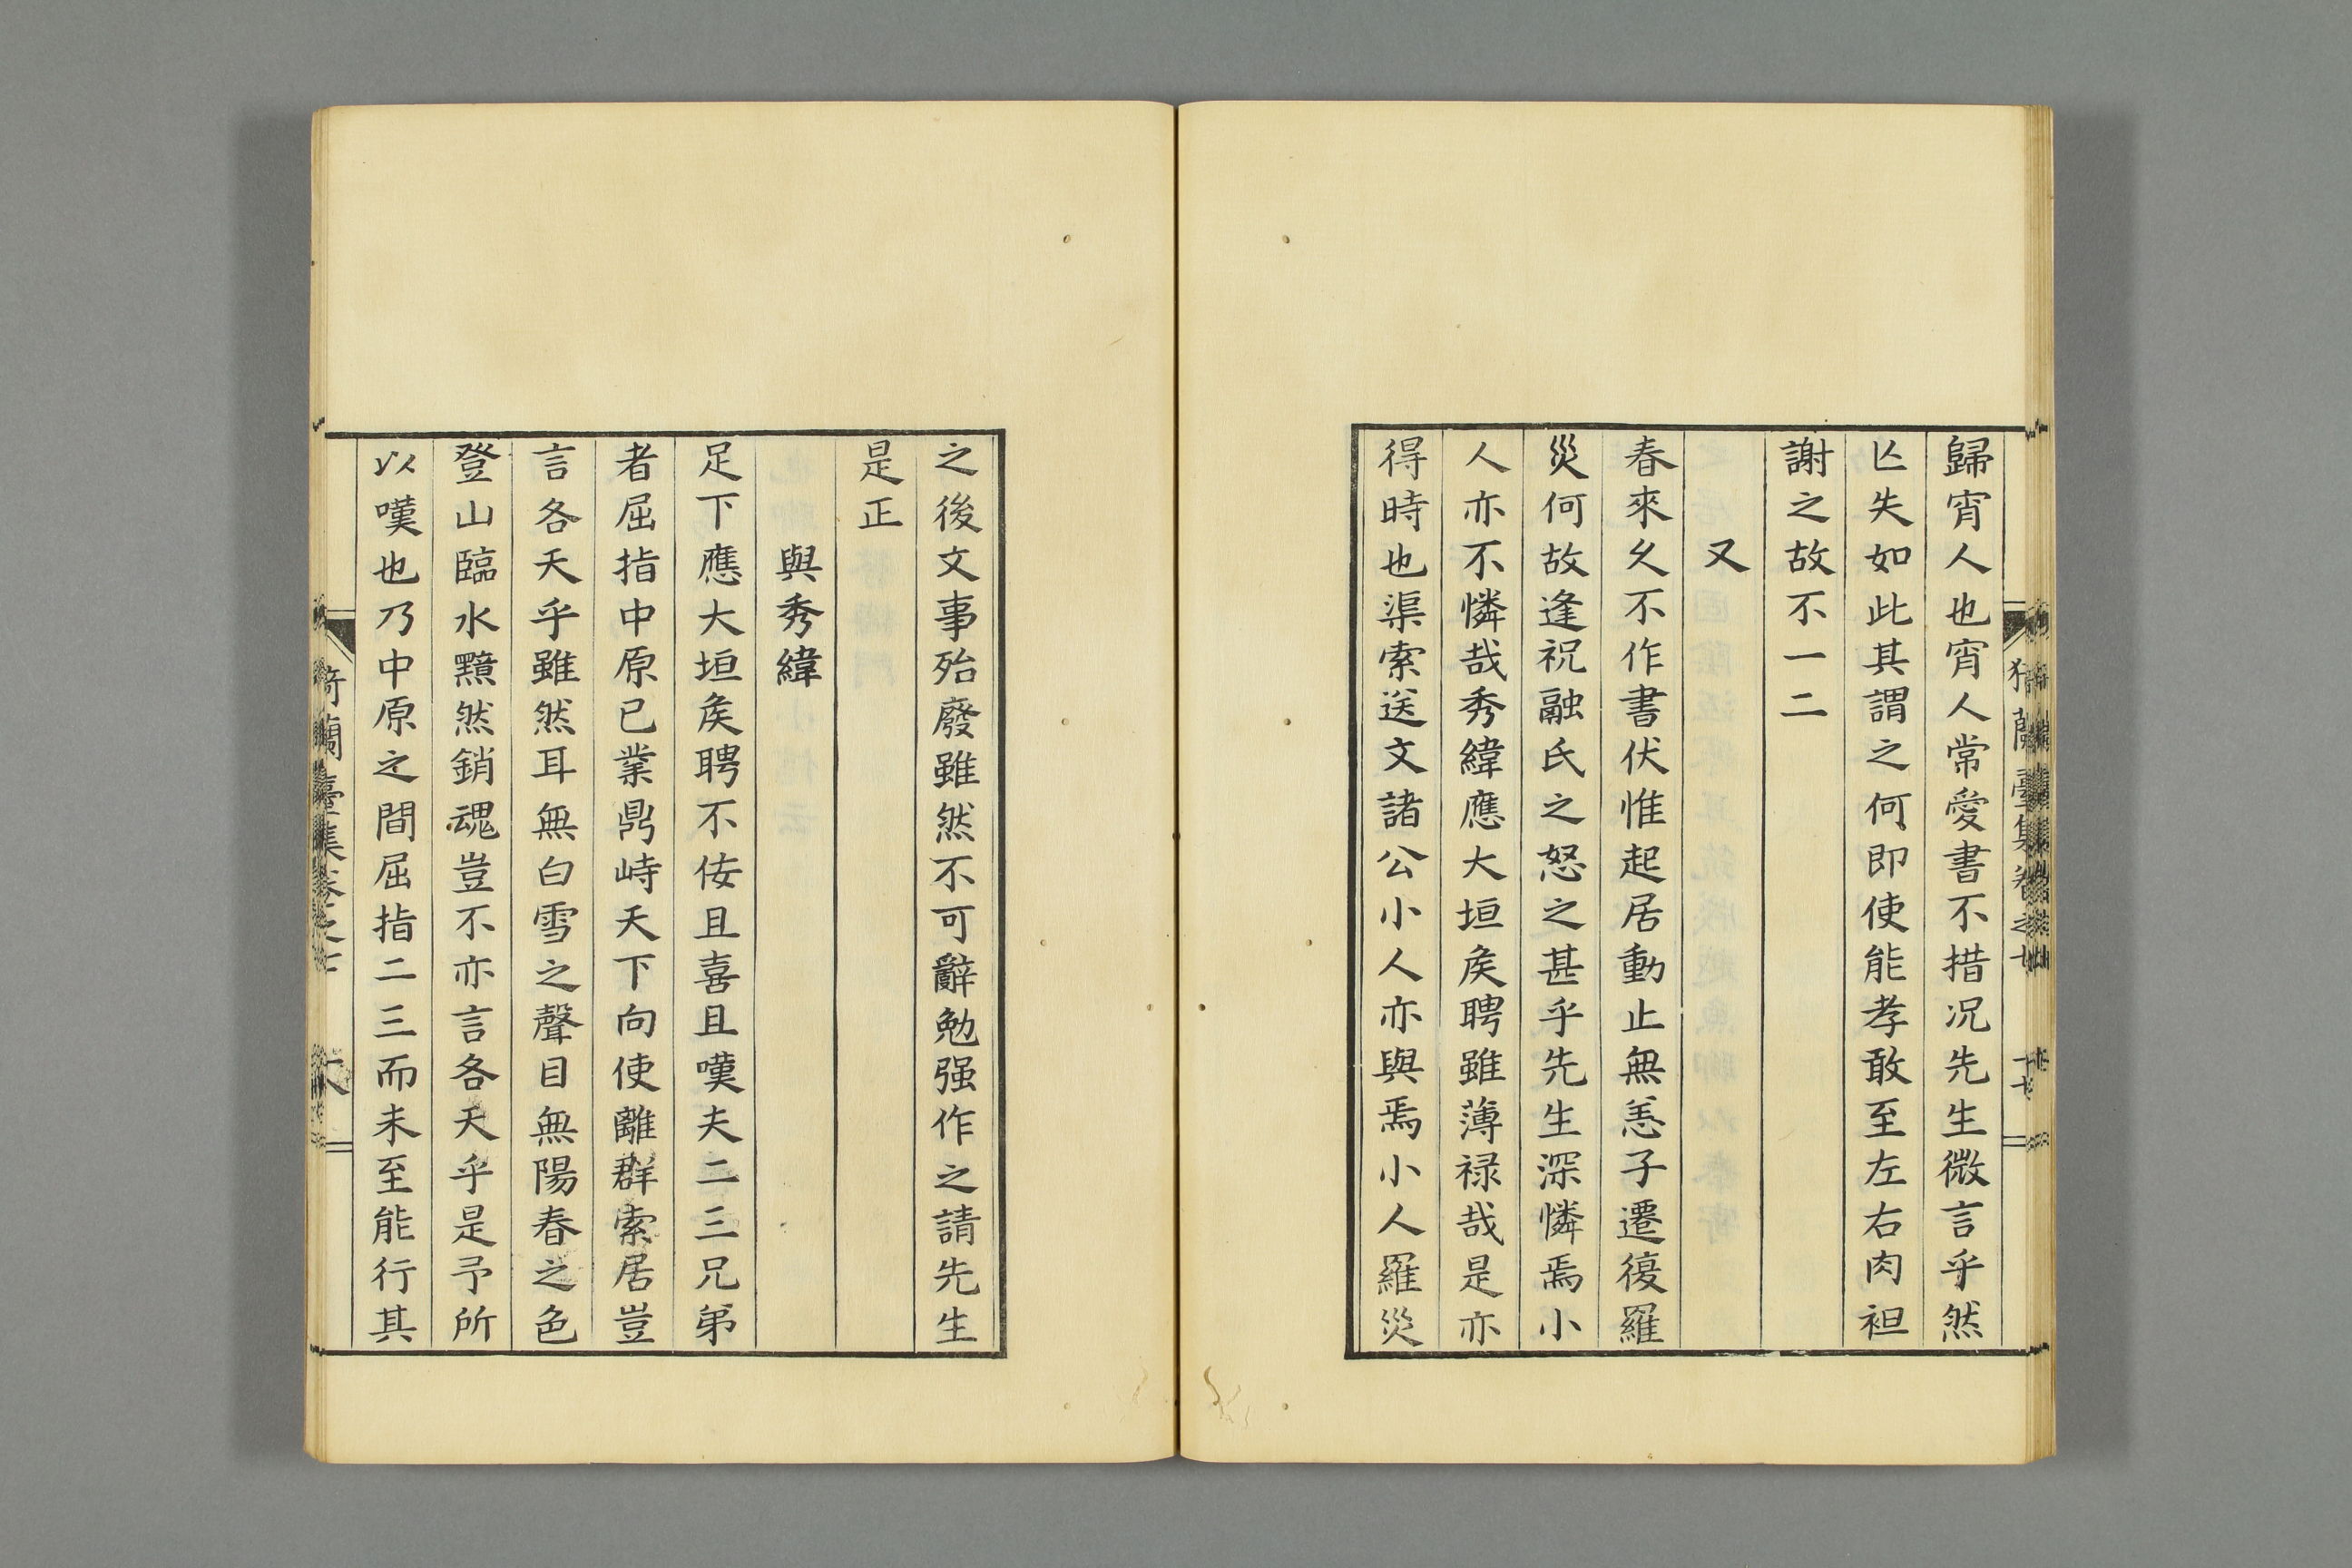 歸宵人也宵人常愛書不措況先生微言乎然
亾失如此其謂之何即使能孝敢至左右肉袒
謝之故不一二
又
春來久不作書伏惟起居動止無恙子遷復羅
災何故逢祝融氏之怒之甚乎先生深憐焉小
人亦不憐哉秀緯應大垣矦聘雖薄禄哉是亦
得時也渠索送文諸公小人亦與焉小人羅災
之後文事殆廢雖然不可辭勉强作之請先生
是正
與秀緯
足下應大垣矦聘不佞且喜且嘆夫二三兄弟
者屈指中原已業鼎峙天下向使離群索居豈
言各天乎雖然耳無白雪之聲目無陽春之色
登山臨水黯然銷魂豈不亦言各天乎是予所
以嘆也乃中原之間屈指二三而未至能行其
猗蘭臺集卷之七